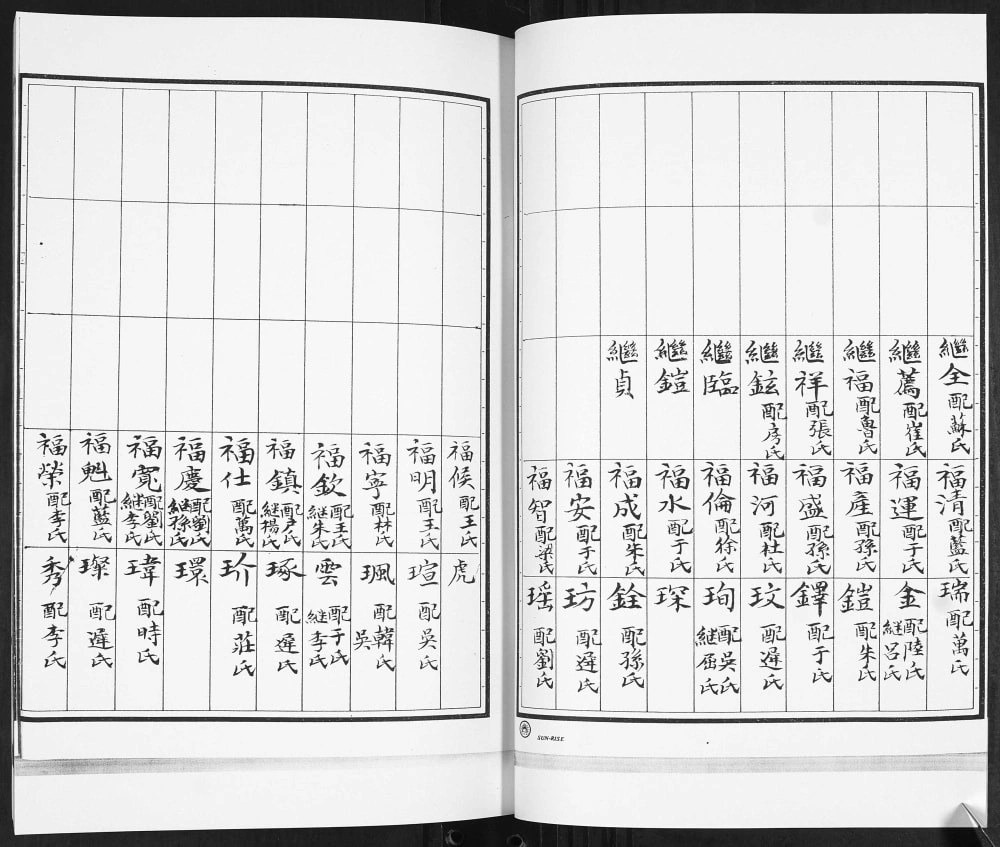 繼全配蘇氏
繼薦配崔氏
繼福配魯氏
繼祥配張氏
繼鉉配房氏
繼臨
繼鎧
繼貞
福清配藍氏
福運配于氏
福產配孫氏
福盛配孫氏
福河配杜氏
福倫配徐氏
福水配于氏
福成配朱氏
福安配于氏
福智配梁氏
瑞配萬氏
金配陸氏繼呂氏
鎧配朱氏
鐸配于氏
玟配遲氏
珣配吳氏繼屈氏
琛
銓配孫氏
玏配遲氏
瑶配劉氏
SUN-RISE
福侯配王氏
福明配王氏
福寧配林氏
福欽配王氏繼朱氏
福鎮配户氏繼楊氏
福仕配萬氏
福慶配劉氏繼孫氏
福寬配劉氏繼李氏
福魁配藍氏
福榮配李氏
虎
瑄配吳氏
珮配韓氏吳
雲配于氏繼李氏
琢配遲氏
玠配莊氏
環
瑋配時氏
璨配遲氏
秀配李氏